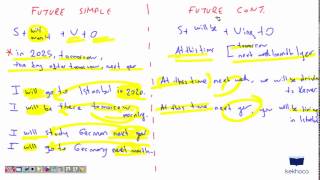 FUTURE SIMPLE
S + will + V + O
won't
* in 2025, tomorrow,
the day after tomorrow, next year
I will go to Istanbul in 2020.
I will be there tomorrow
I will study German next year
I will go to Germany next month
FUTURE CONT.
S + will be + Ving + O
At this time tomorrow
next week
At this time next week, we will be
to
At this time next year you will be living
in
kekhoca